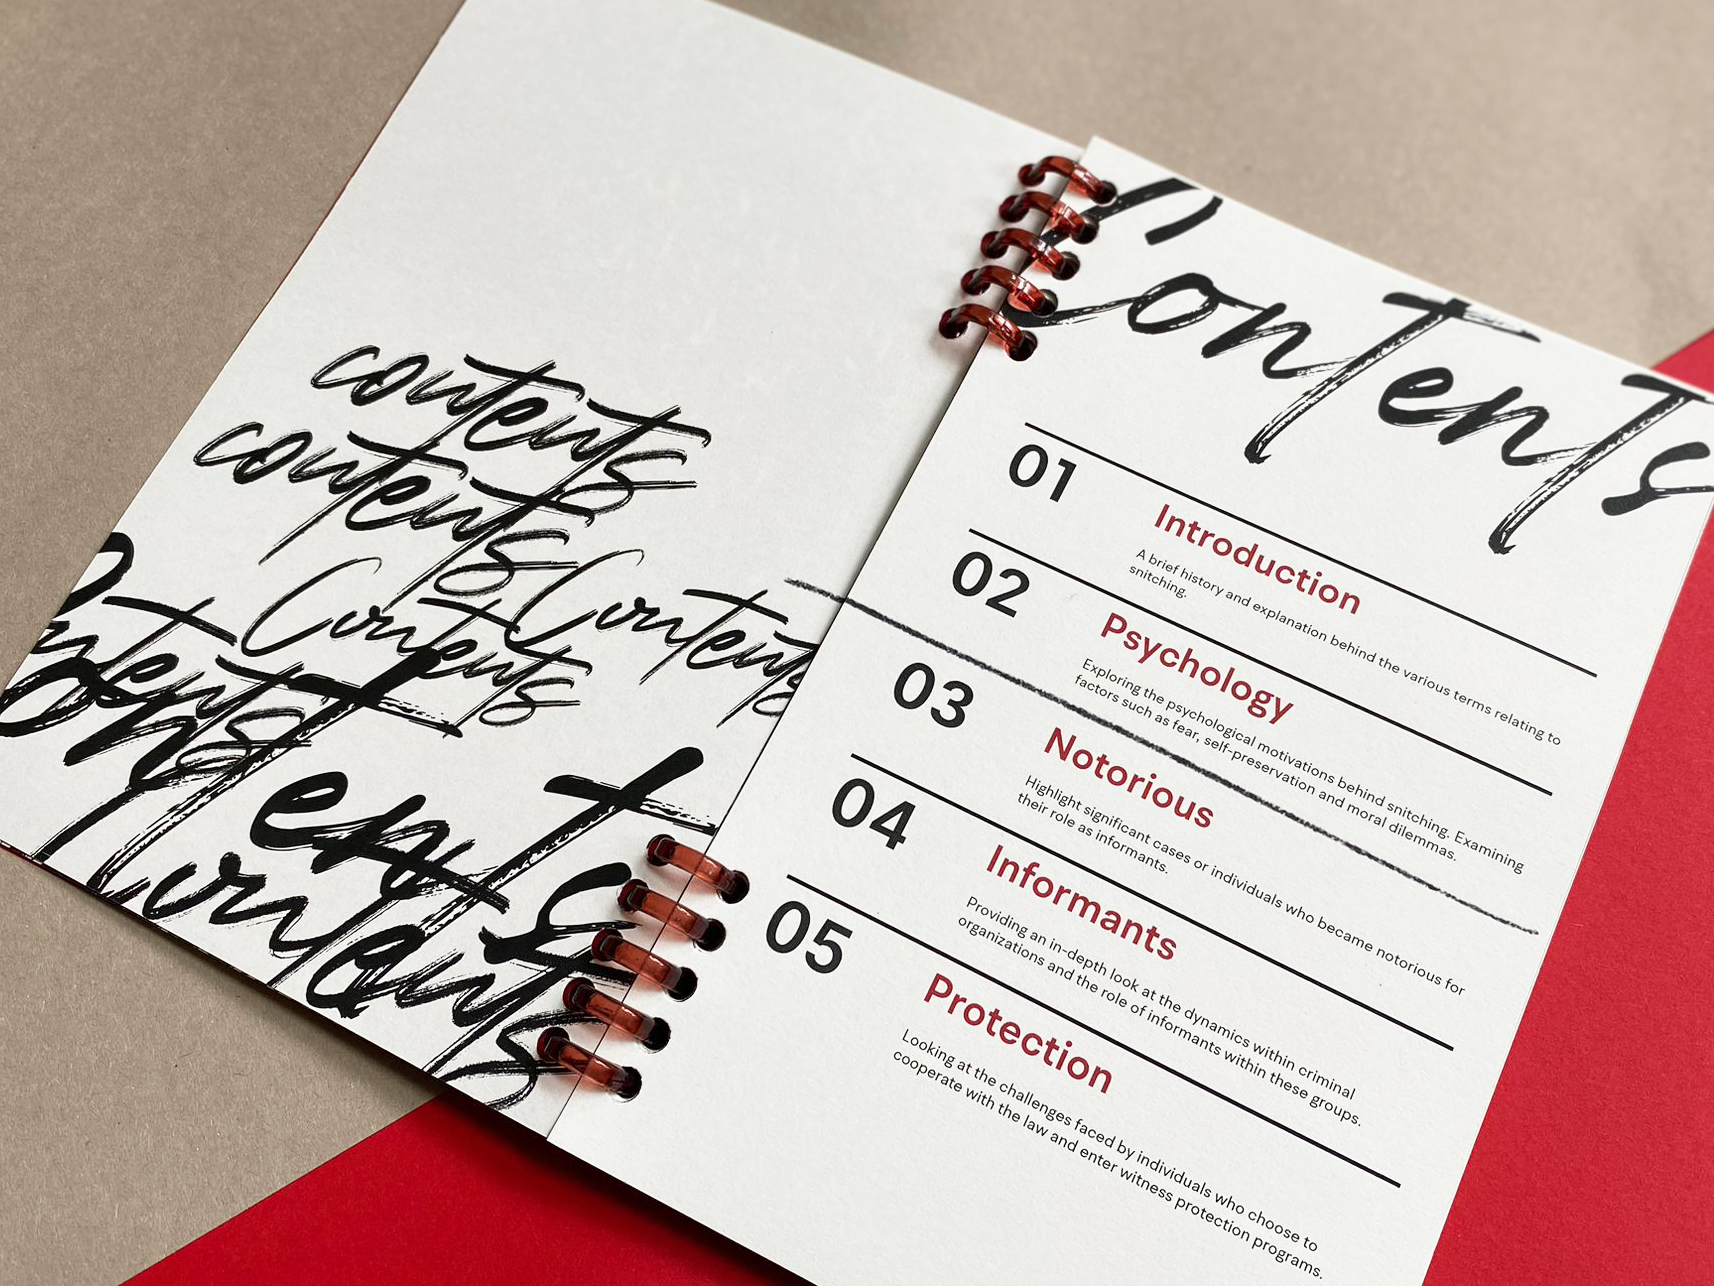 contents
contents
Contents Contents
ontents
Contents
Contents
Contents
01
Introduction
A brief history and explanation behind the various terms relating to
snitching.
02
Psychology
Exploring the psychological motivations behind snitching. Examining
factors such as fear, self-preservation and moral dilemmas.
03
Notorious
Highlight significant cases or individuals who became notorious for
their role as informants.
04
Informants
Providing an in-depth look at the dynamics within criminal
organizations and the role of informants within these groups.
05
Protection
Looking at the challenges faced by individuals who choose to
cooperate with the law and enter witness protection programs.